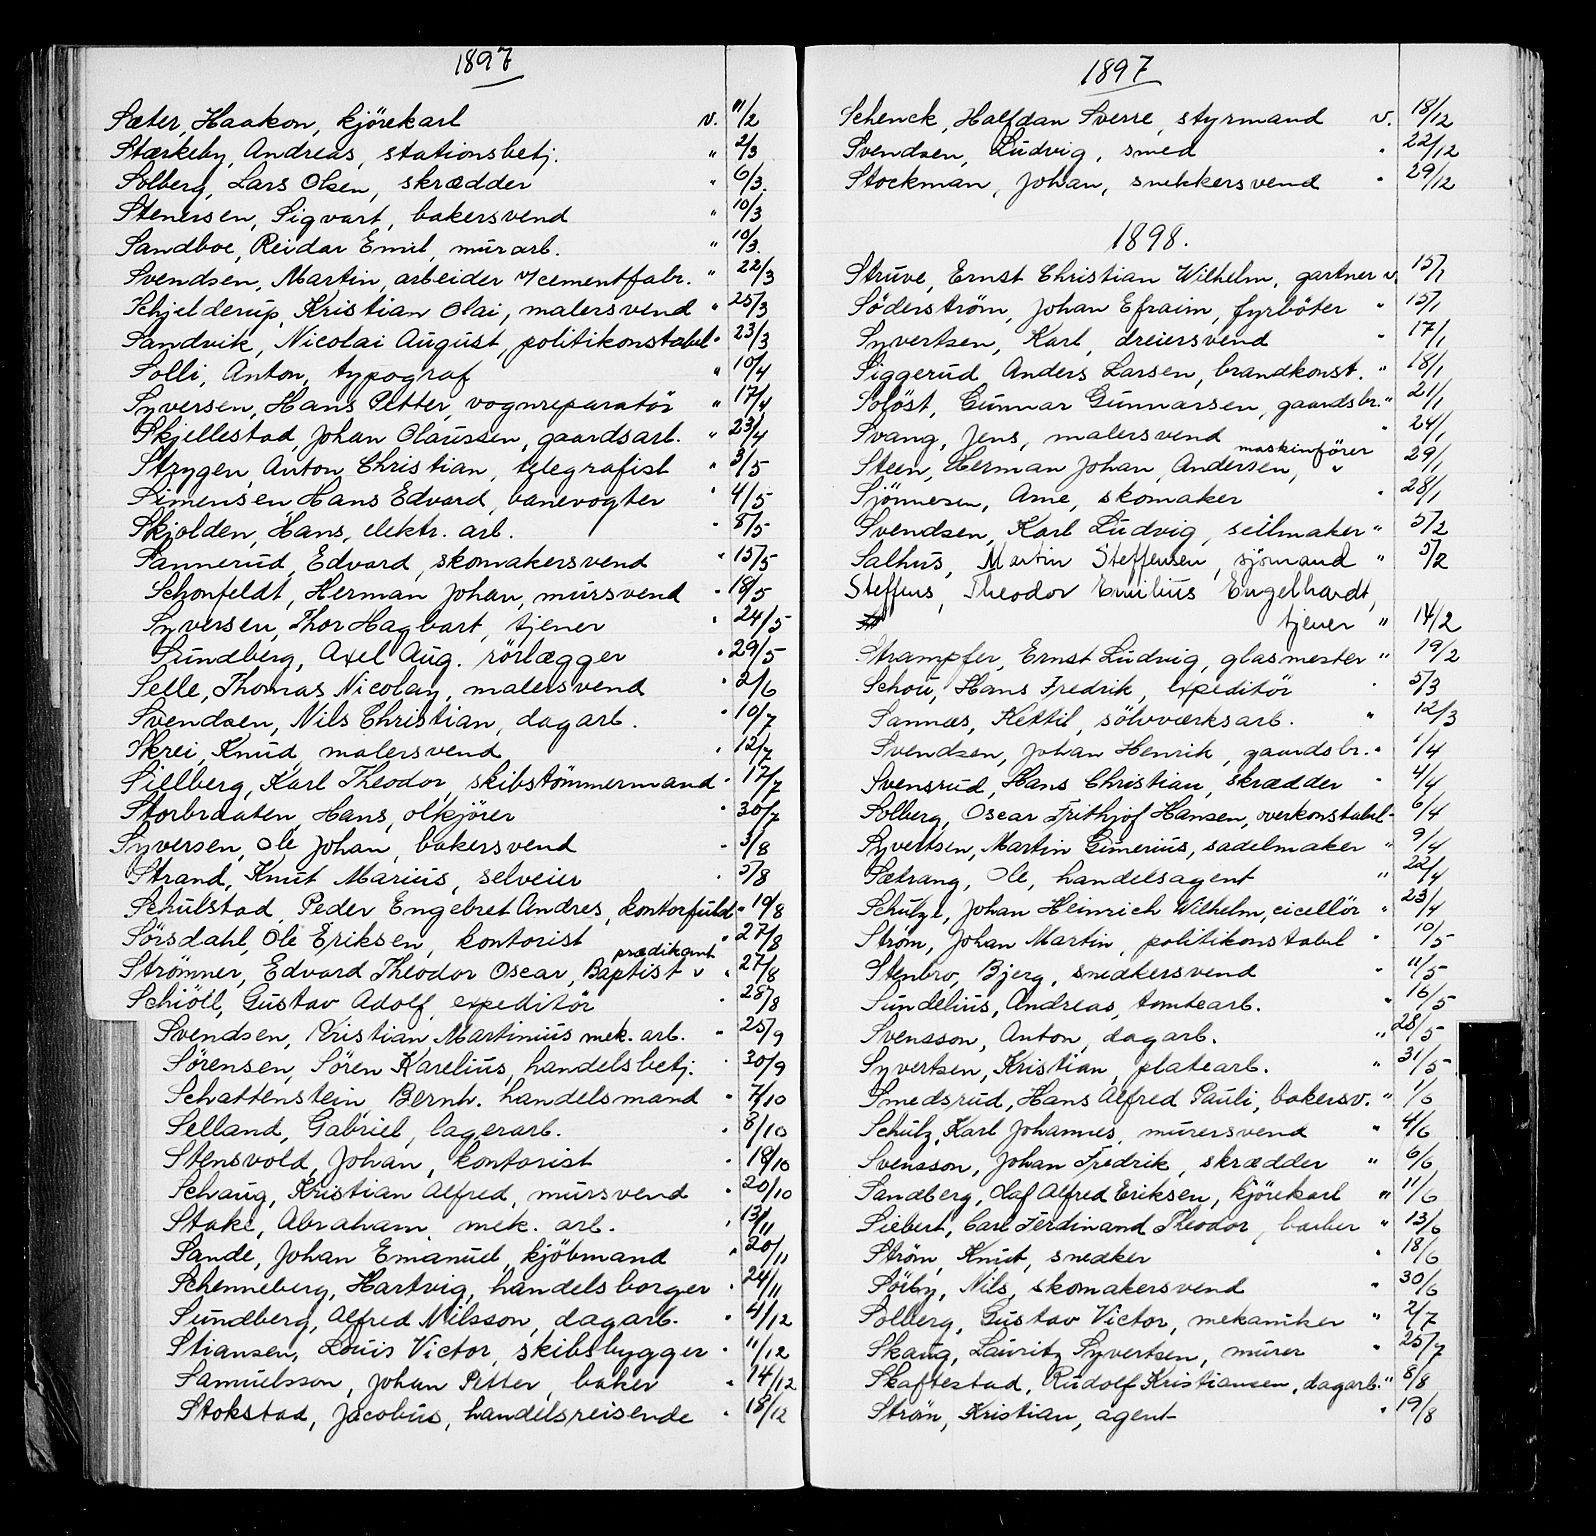 1897
Sæter, Haakon, kjörekarl v. 11/2
Stærkeby, Andreas, stationsbetj. " 2/3
Solberg, Lars Olsen, skrædder " 6/3.
Stenersen, Sigvart, bakersvend " 10/3
Sandboe, Reidar Emil, murarb. " 10/3.
Svendsen, Martin, arbeider v/cementfabr. " 22/3
Schjelderup, Kristian Olai, malersvend " 25/3
Sandvik, Nicolai August, politikonstabel " 23/3
Solli, Anton, typograf " 10/4
Syversen, Hans Petter, vognreparatör " 17/4
Skjellestad, Johan Olaussen, gaardsarb. " 23/4
Strygen, Anton Christian, telegrafist " 3/5
Simensen, Hans Edvard, banevogter " 4/5
Skjolden, Hans, elektr. arb. " 8/5
Sannerud, Edvard, skomakersvend " 15/5
Schonfeldt, Herman Johan, mursvend " 18/5
Syversen, Thor Hagbart, tjener " 24/5
Sundberg, Axel Aug. rörlægger " 29/5
Selle, Thomas Nicolay, malersvend " 2/6
Svendsen, Nils Christian, dagarb. " 10/7
Skrei, Knud, malersvend " 12/7
Sillberg, Karl Theodor, skibstömmermand " 17/7
Storbraaten, Hans, ölkjörer " 30/7
Syversen, Ole Johan, bakersvend " 3/8
Strand, Knut Marius, selveier " 5/8
Schulstad, Peder Engebret Andres, kontorfuld. " 19/8
Sörsdahl, Ole Eriksen, kontorist " 27/8
Strömner, Edvard Theodor Oscar, Baptist prædikant " 27/8
Schiöll, Gustav Adolf, expeditör " 28/8
Svendsen, Kristian Martinius mek. arb. " 25/9
Sörensen, Sören Karelius, handelsbetj. " 30/9
Schattenstein Bernh. handelsmand " 7/10
Selland, Gabriel, lagerarb. " 8/10
Stensvold, Johan, kontorist " 18/10
Schaug, Kristian Alfred, mursvend " 20/10
Stake, Abraham, mek. arb. " 13/11
Sande, Johan Emanuel, kjöbmand " 20/11
Schenneberg, Hartvig, handelsborger " 24/11
Sundberg, Alfred Nilsson, dagarb. " 4/12
Stiansen, Louis Victor, skibsbygger " 11/12
Samuelsson, Johan Petter, baker " 14/12
Stokstad, Jacobus, handelsreisende " 18/12
1897
Schenck, Halfdan Sverre, styrmand v. 18/12
Svendsen, Ludvig, smed " 22/12
Stockman, Johan, snekkersvend " 29/12
1898.
Struve, Ernst Christian Wilhelm, gartner v. 15/1
Söderström, Johan Efraim, fyrböter " 15/1
Syvertsen, Karl, dreiersvend " 17/1
Siggerud Anders Larsen, brandkonst. " 18/1
Solöst, Gunnar Gunnarsen, gaardsbr. " 21/1
Svang, Jens, malersvend " 24/1
Steen, Herman Johan, Andersen, maskinförer " 29/1
Sjönnesen, Arne, skomaker " 28/1
Svendsen, Karl Ludvig, seilmaker " 5/2
Salhus, Martin Steffensen, sjömand " 5/2
Steffens, Theodor Emilius Engelhardt,
tjener " 14/2
Strampfer, Ernst Ludvig, glasmester " 19/2
Schou, Hans Fredrik, expeditör " 5/3
Sannæs, Kettil, sölvværksarb. " 12/3
Svendsen, Johan Henrik, gaardsbr. " 1/4
Svensrud, Hans Christian, skrædder " 4/4
Solberg, Oscar Frithjof Hansen, overkonstabel " 6/4
Syvertsen, Martin Gunerius, sadelmaker " 9/4
Sætrang, Ole, handelsagent " 22/4
Schulze, Johan Heinrich Wilhelm, cicellör " 23/4
Ström, Johan Martin, politikonstabel " 10/5
Stenbro, Bjerg, snedkersvend " 11/5
Sundelius, Andreas, tomtearb. " 16/5
Svensson, Anton, dagarb. " 28/5
Syvertsen, Kristian, platearb. " 31/5
Smedsrud, Hans Alfred Pauli, bakersv. " 1/6
Schulz, Karl Johannes, murersvend " 4/6
Svensson, Johan Fredrik, skrædder " 6/6
Sandberg, Olaf Alfred Eriksen, kjörekarl " 11/6
Siebert, Carl Ferdinand Theodor, barber " 13/6
Ström, Knut, snedker " 18/6
Sörby, Nils, skomakersvend " 30/6
Solberg, Gustav Victor, mekaniker " 2/7
Skaug, Lauritz Syvertsen, murer " 25/7
Skaftestad, Rudolf Kristiansen, dagarb. " 8/8
Ström, Kristian, agent " 19/8